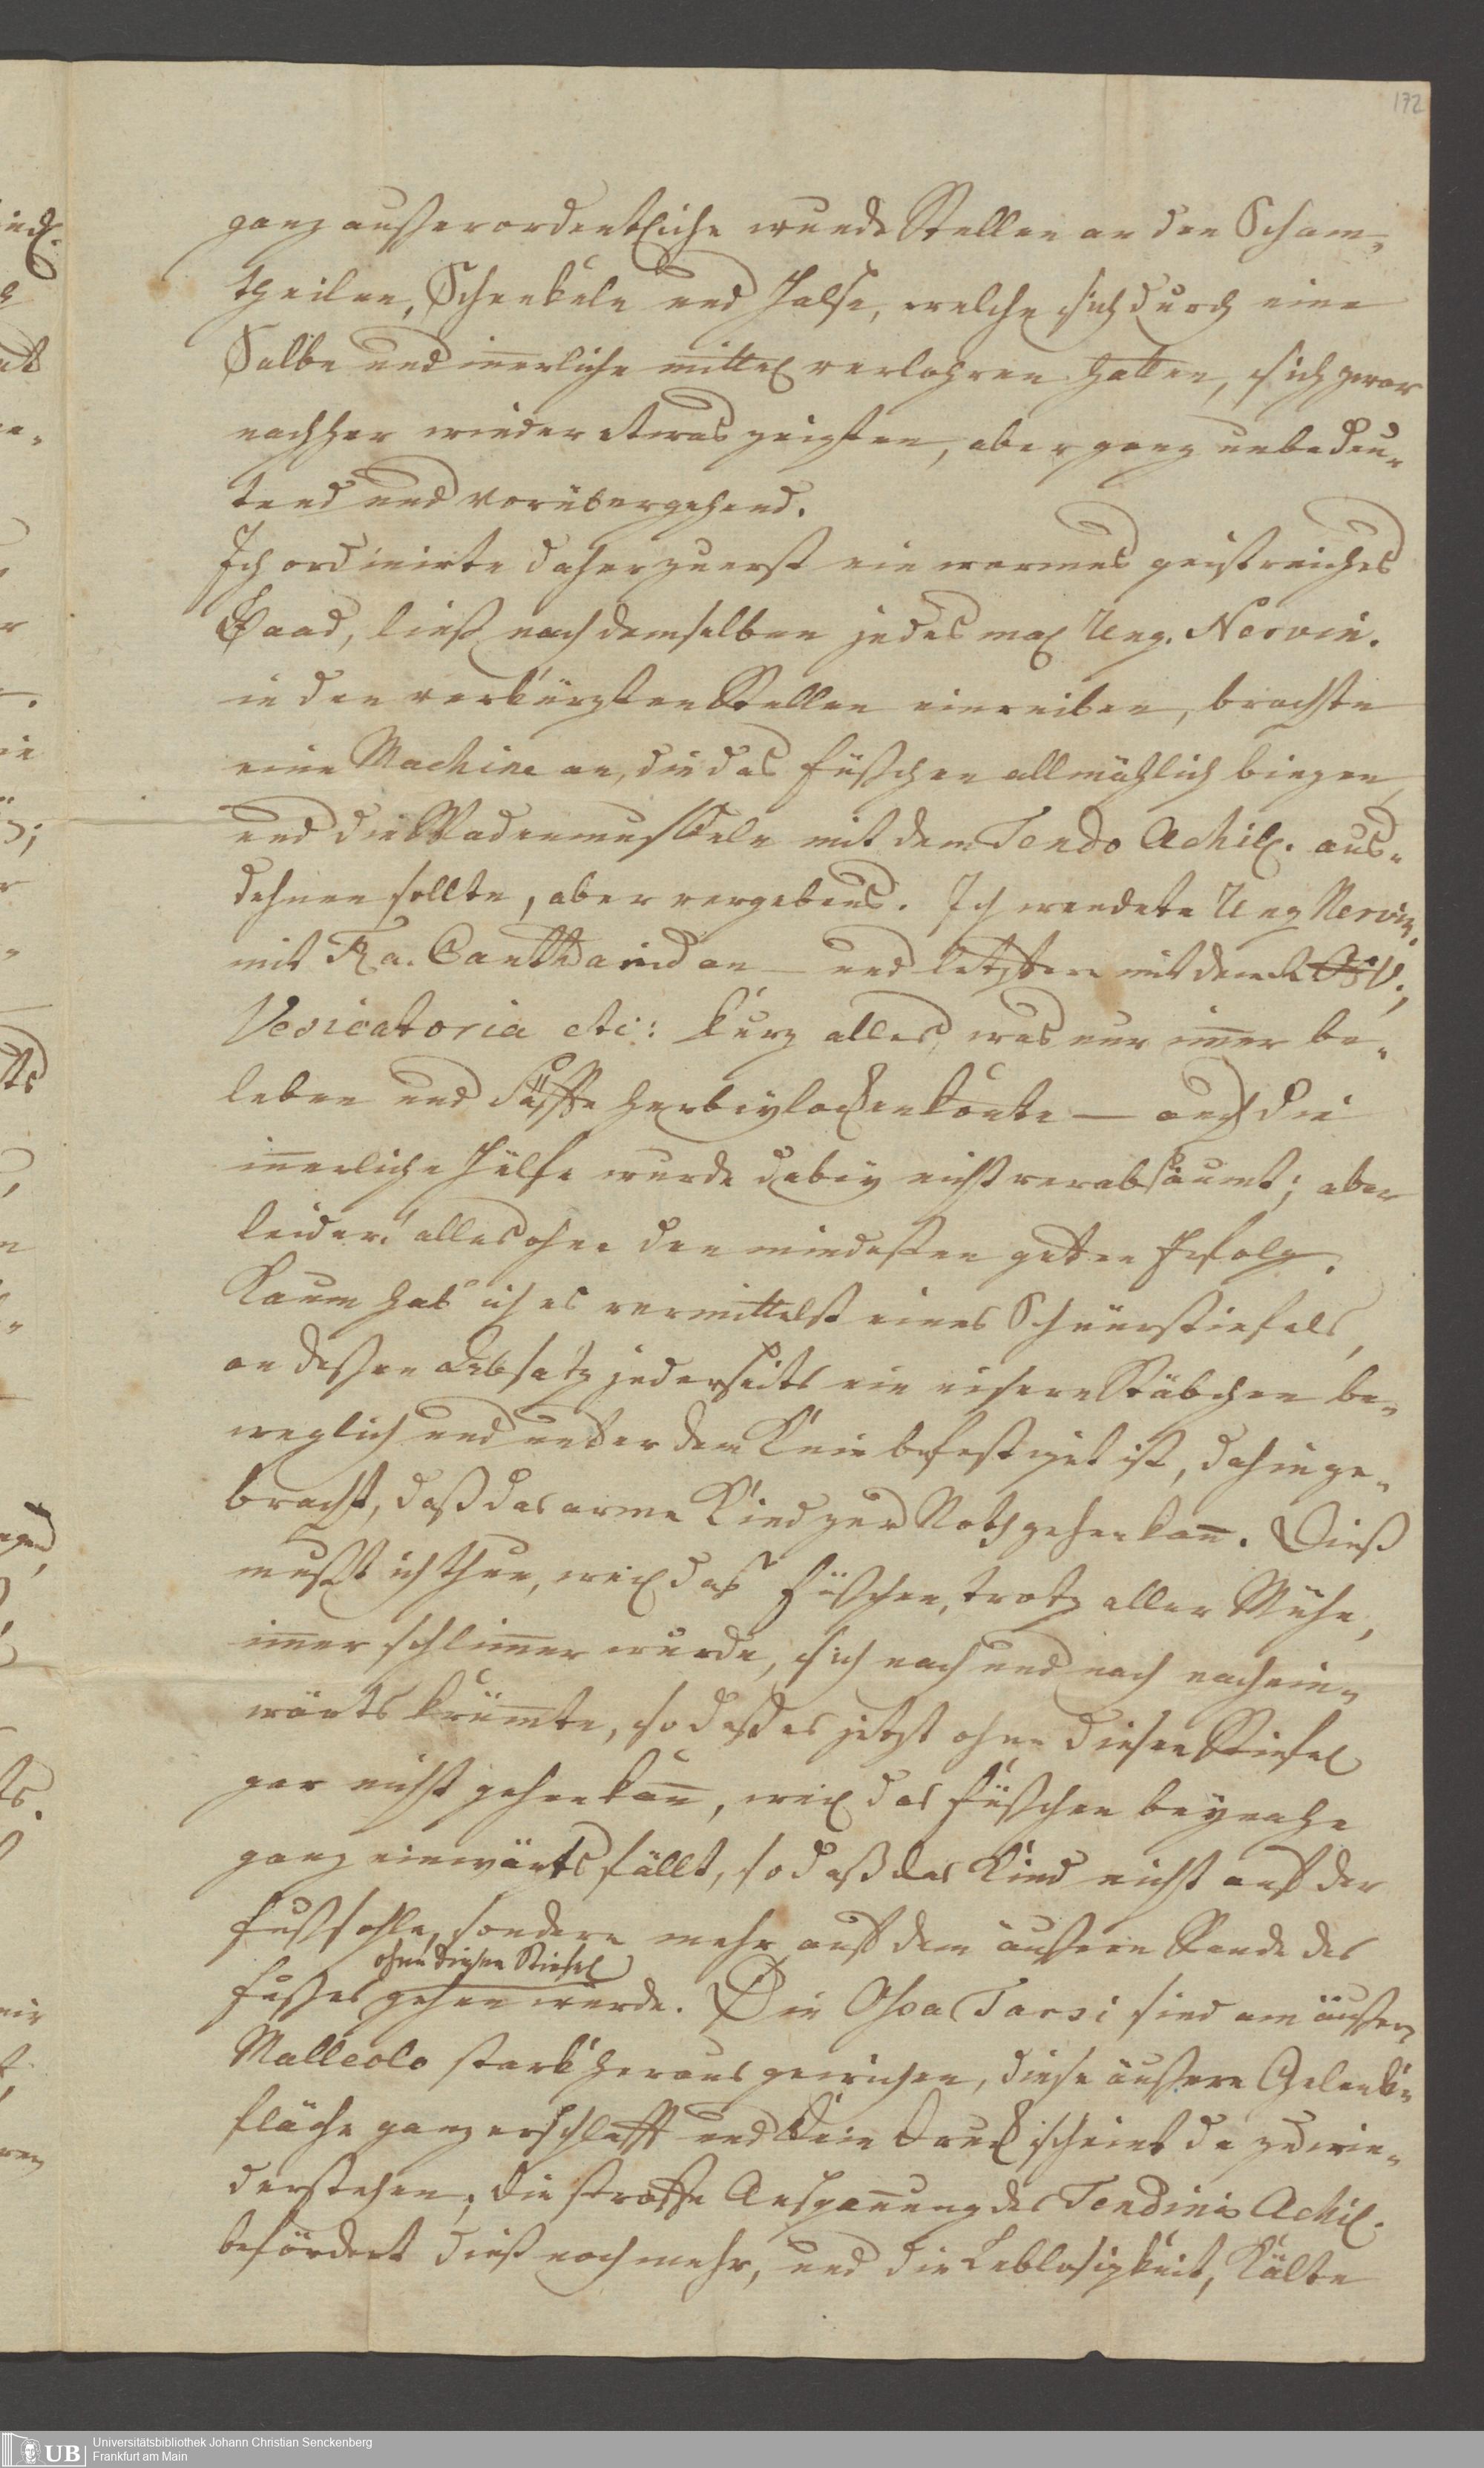 172
ganz außerordentliche wunde Stellen an den Scham-
theilen, Schenkeln und Halse, welche sich durch eine
Salbe und inerliche mittel verlohren hatten, sich zwar
nachher wieder etwas zeigten, aber ganz unbedeu-
tend und vorübergehend.
Ich ordinirte daher zuerst ein warmes geistreiches
Baad, ließ nach demselben jedes mal Ung. Nervin.
in den verkürzten Stellen einreiben, brachte
eine Machine an, die das Füßchen allmählich biegen,
und die Wadenmuskeln mit dem Tendo Achil. aus-
dehnen sollte, aber vergebens. Ich wendete Ung Nervin.
mit Ra. Cantharid an – und letztere mit dem
Vesicatoria etc: kurz alles was nur imer be-
leben und Säffte herbeylocken konte — auch die
inerliche Hülfe wurde dabey nicht verabsäumt; aber
leider! alles ohne den mindesten guten Erfolg.
Kaum hab ich es vermittelst eines Schnürstiefels,
an deßen Absatz jederseits ein eisern Stäbchen be-
weglich und unter dem Knie befestiget ist, dahin ge-
bracht, daß das arme Kind zur Noth gehen kan. Dieß
mußt ich thun, weil das Füßchen, trotz aller Mühe,
imer schlimer wurde, sich nach und nach nach ein-
wärts krümte, so daß es jetzt ohne diesen Stiefel
gar nicht gehen kan, weil das Füßchen beynahe
ganz einwärts fällt, so daß das Kind nicht auf der
Fußsohle, sondern mehr auf dem äußern Rande des
ohne diesen Stiefel
Fußes gehen würde. Die Ossa Tarsi sind am äußern
Malleolo stark heraus gewichen, diese äußere Gelenk-
fläche ganz erschlafft und kein Druck scheint da zu wie-
derstehen; die straffe Anspanung des Tendinis Achil.
befördert dieß noch mehr, und die Leblosigkeit, Kälte
UB Universitätsbibliothek Johann Christian Senckenberg
Frankfurt am Main